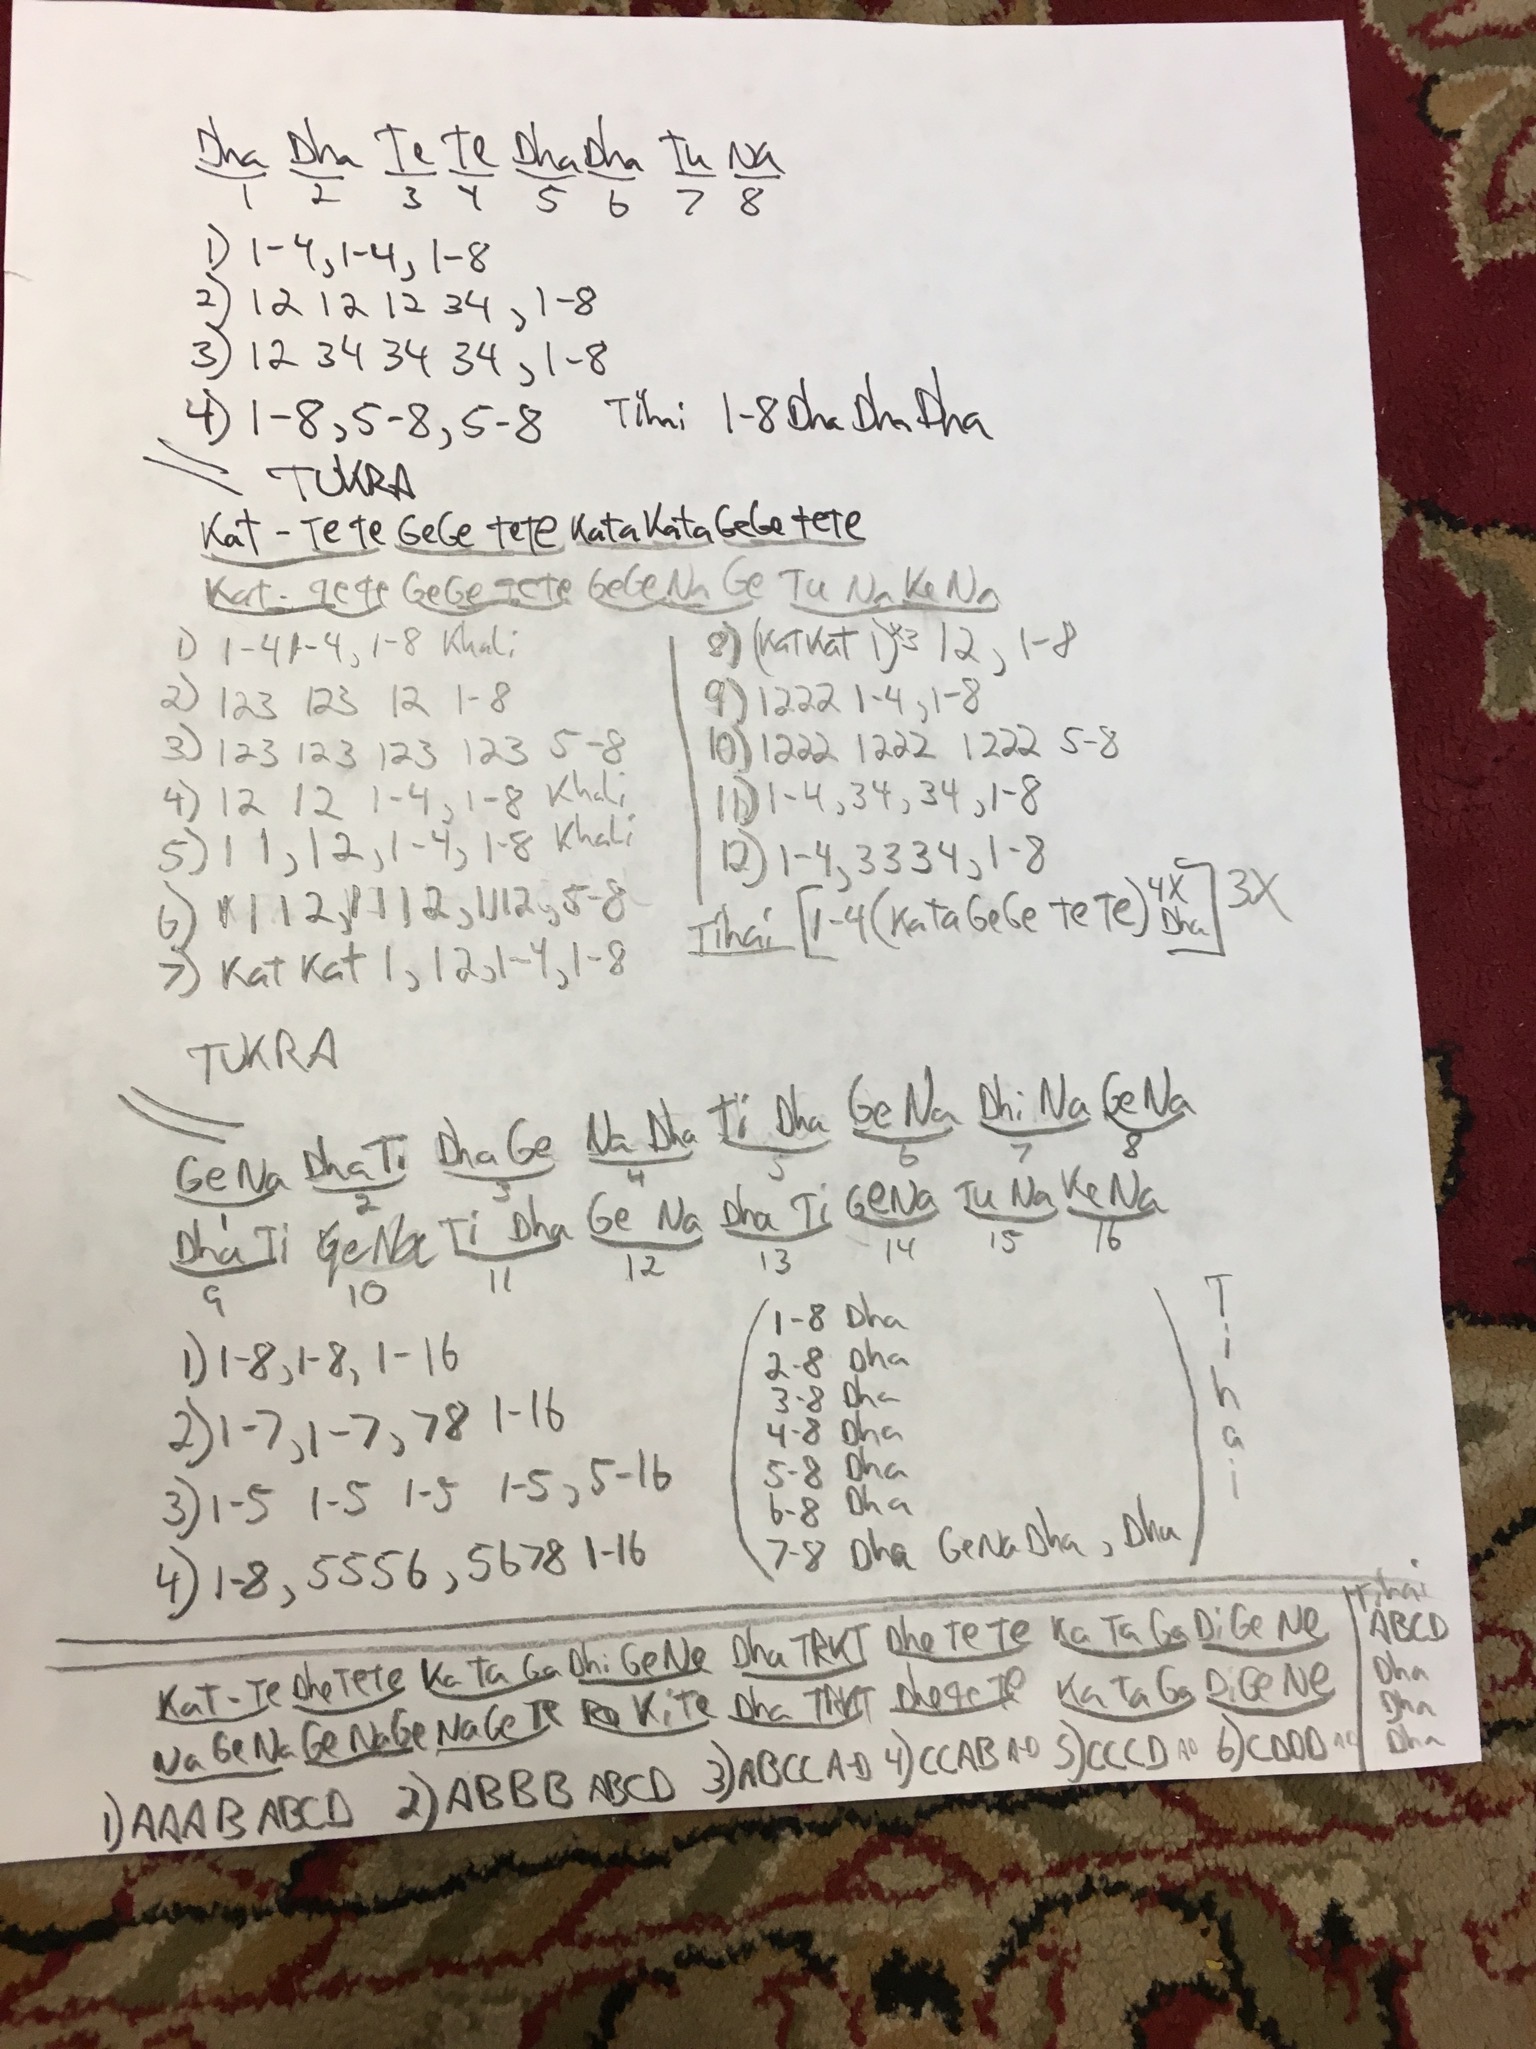 Dha Dha Te Te Dha Dha Tu Na
1 2 3 4 5 6 7 8
1) 1-4, 1-4, 1-8
2) 12 12 12 34, 1-8
3) 12 34 34 34, 1-8
4) 1-8, 5-8, 5-8 Tihai 1-8 Dha Dha Dha
TUKRA
Kat - TeTe GeGe teTe KataKata GeGe teTe
Kat - teTe GeGe teTe GeGeNa Ge Tu Na Ke Na
1) 1-4 1-4, 1-8 Khali
2) 123 123 12 1-8
3) 123 123 123 123 5-8
4) 12 12 1-4, 1-8 Khali
5) 1 1, 12, 1-4, 1-8 Khali
6) 1112, 1112, 1112, 5-8
7) Kat Kat 1, 12, 1-4, 1-8
8) (Kat Kat 1)x3 12, 1-8
9) 1222 1-4, 1-8
10) 1222 1222 1222 5-8
11) 1-4, 34, 34, 1-8
12) 1-4, 3334, 1-8
Tihai [1-4 (KaTa GeGe TeTe) 4X Dha] 3X
TUKRA
GeNa DhaTi DhaGe NaDha Ti Dha GeNa Dhi Na GeNa
2 3 4 5 6 7 8
Dha Ti GeNa Ti Dha Ge Na Dha Ti GeNa Tu Na KeNa
9 10 11 12 13 14 15 16
1) 1-8, 1-8, 1-16
2) 1-7, 1-7, 78 1-16
3) 1-5 1-5 1-5 1-5, 5-16
4) 1-8, 5556, 5678 1-16
1-8 Dha
2-8 Dha
3-8 Dha
4-8 Dha
5-8 Dha
6-8 Dha
7-8 Dha GeNaDha, Dha
Tihai
Kat-Te DheTeTe KaTaGa DhiGeNe Dha TRKT DheTeTe KaTaGa DiGeNe
NaGeNa GeNaGe NaGeTe KiTe Dha TRKT DheteTe KaTaGa DiGeNe
1) AAAB ABCD 2) ABBB ABCD 3) ABCC A-D 4) CCAB A-D 5) CCCD AD 6) CDDD
Tihai
ABCD
Dha
Dha
Dha